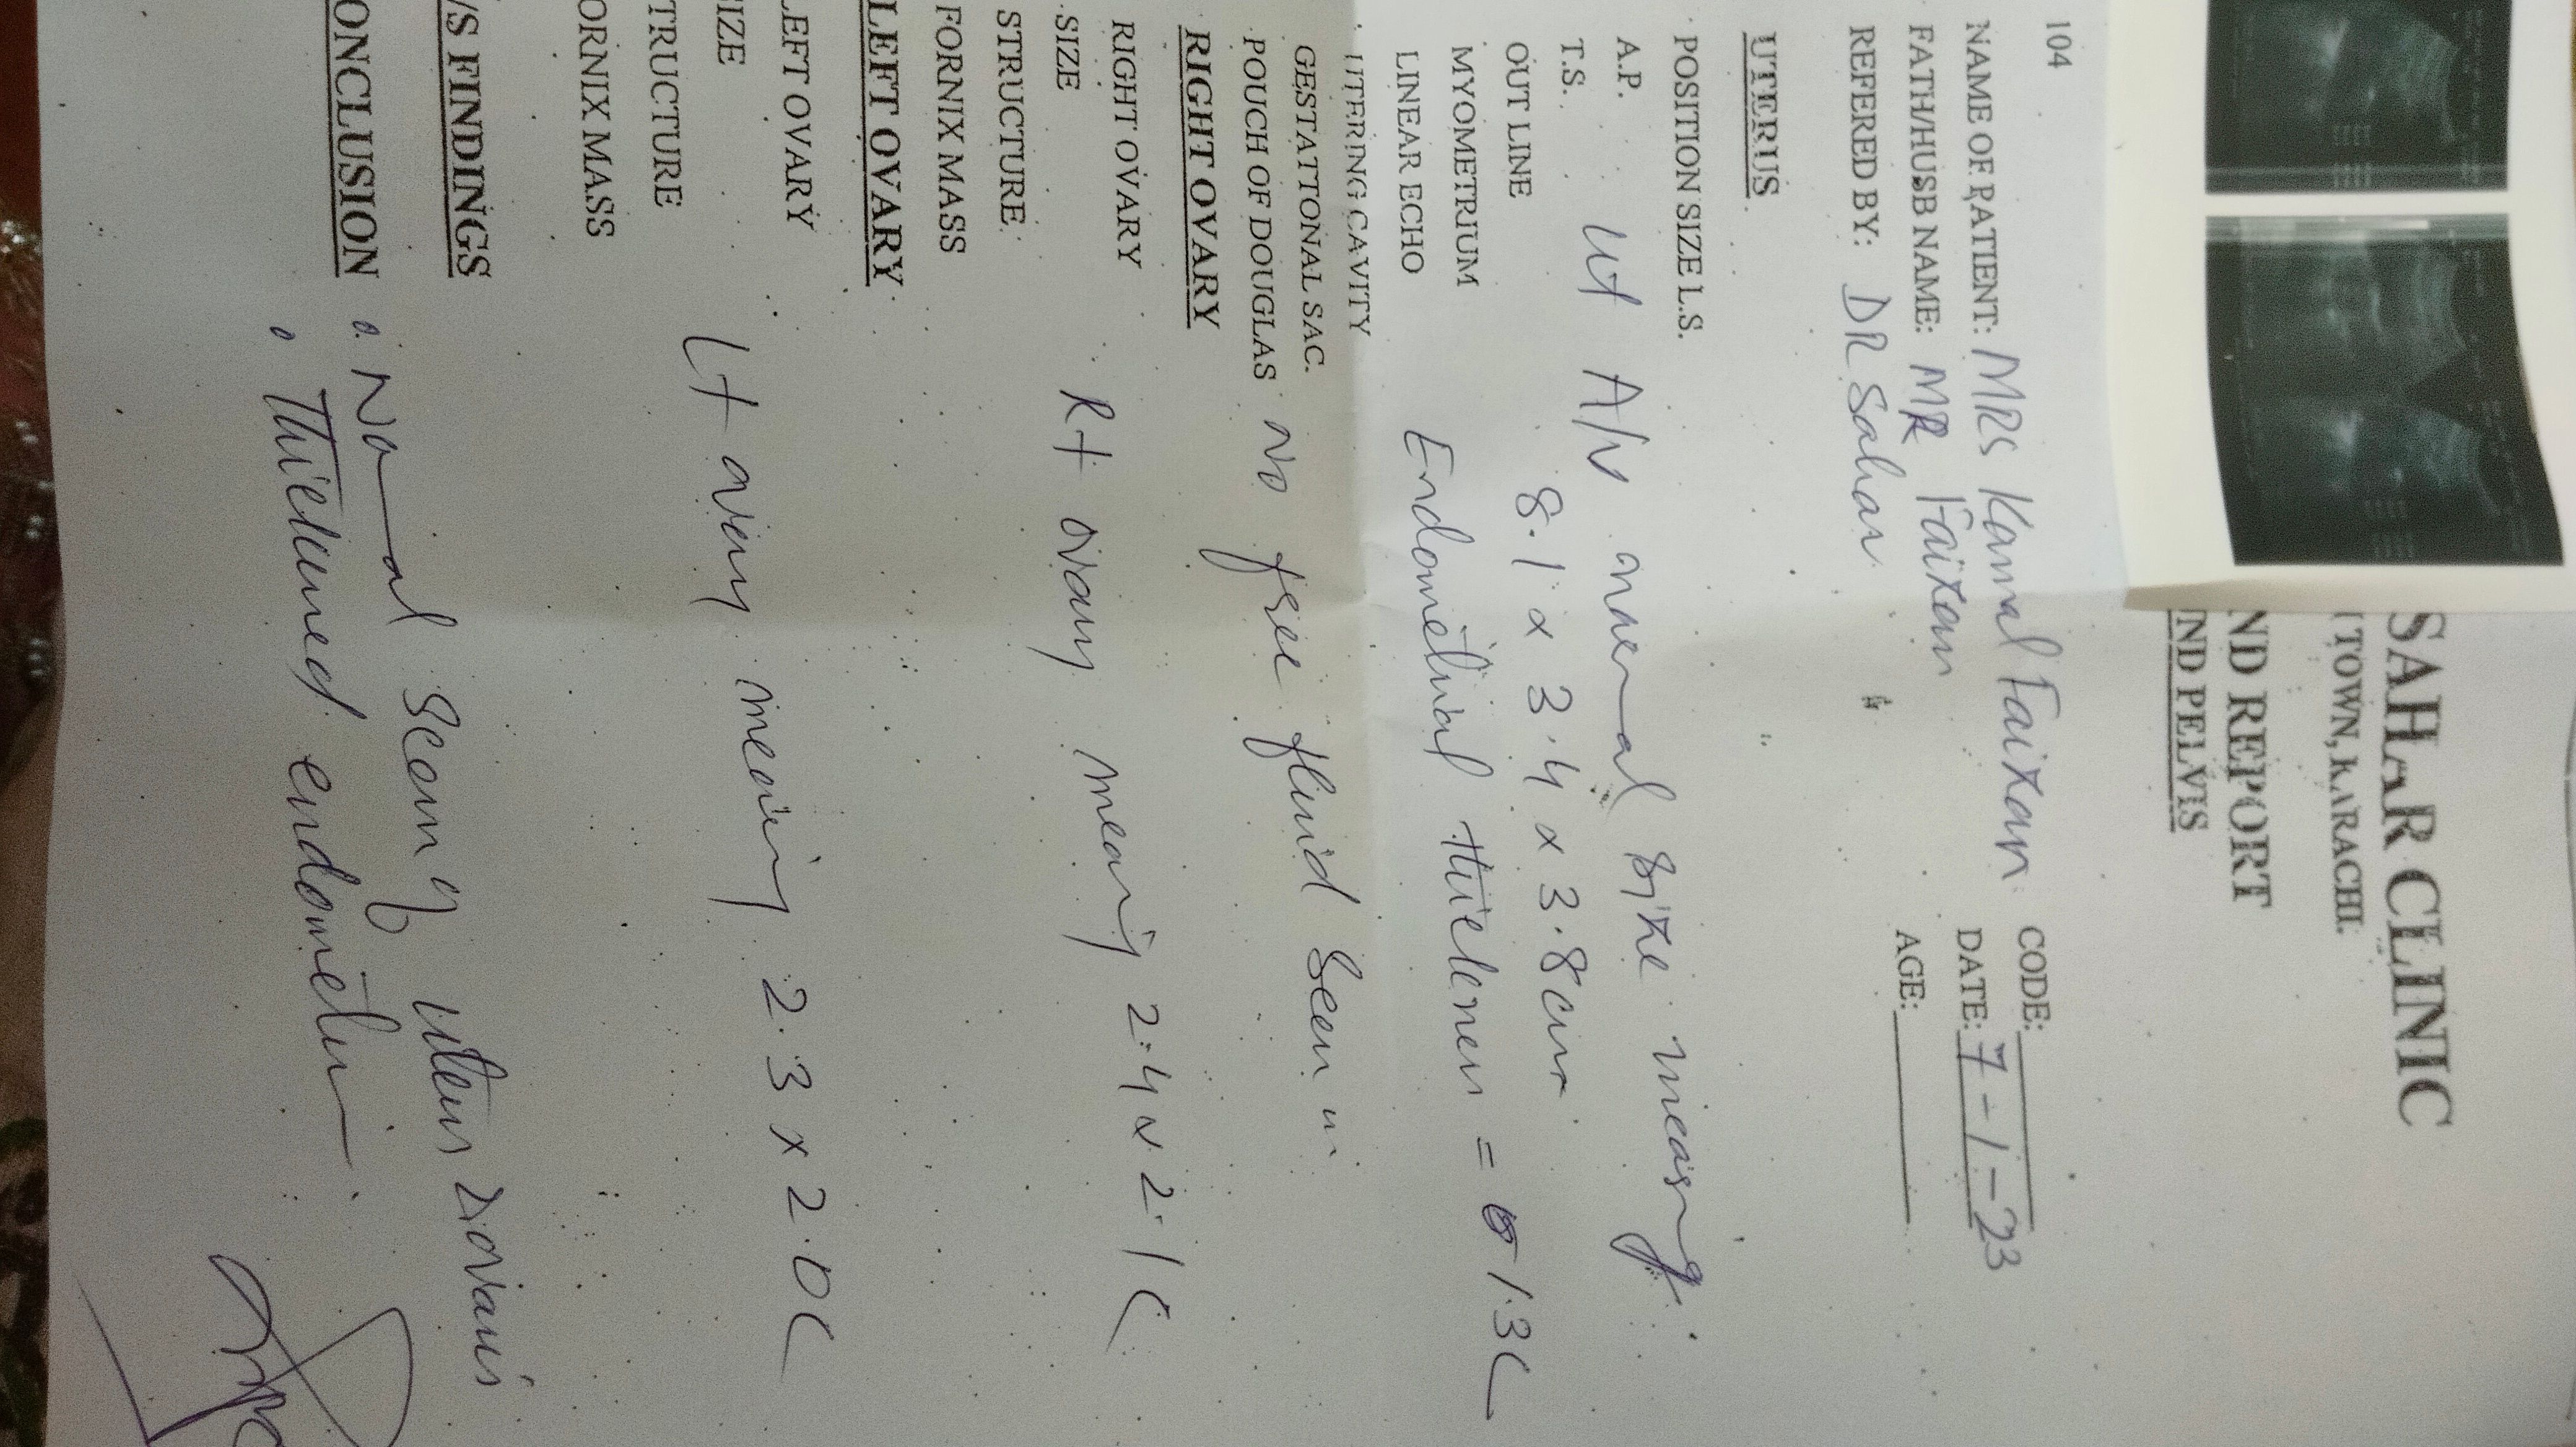 SAHAR CLINIC
TOWN, KARACHI.
ND REPORT
ND PELVIS
104
NAME OF PATIENT: MRS Kanwal Faizan CODE:
FATH/HUSB NAME: MR Faizan DATE: 7-1-23
REFERED BY: DR Sahar AGE:
UTERUS
POSITION SIZE L.S.
A.P. ut A/V normal size measing
T.S.
OUT LINE 8.1 x 3.4 x 3.8cm
MYOMETRIUM
LINEAR ECHO Endometrial thickness = 1.3c
UTERING CAVITY
GESTATTONAL SAC.
POUCH OF DOUGLAS No free fluid seen in
RIGHT OVARY
RIGHT OVARY
SIZE Rt ovary meaing 2.4 x 2.1c
STRUCTURE
FORNIX MASS
LEFT OVARY
LEFT OVARY
SIZE
TRUCTURE Lt ovary meaing 2.3 x 2.0c
ORNIX MASS
/S FINDINGS
ONCLUSION • Normal scan of uterus & ovaries
• Thickened endometrium